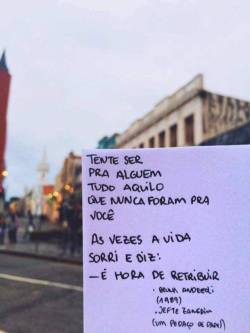 TENTE SER
PRA ALGUEM
TUDO AQUILO
QUE NUNCA FORAM PRA
VOCÊ
AS VEZES A VIDA
SORRI E DIZ:
— É HORA DE RETRIBUIR
(1989)
. JEFTE
(UM PEDAÇO DE PAPEL)